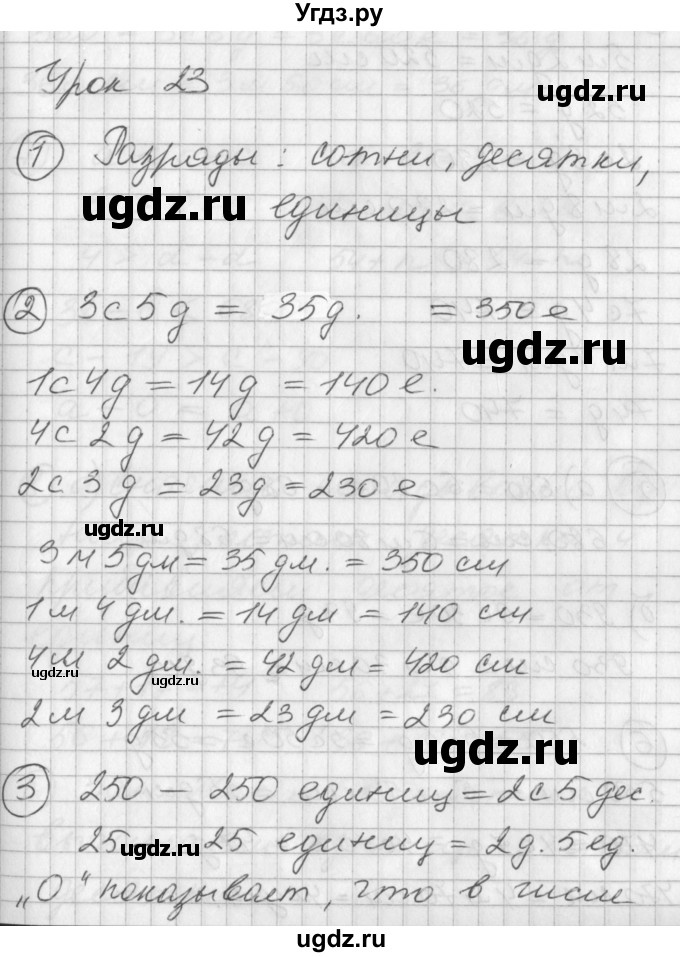 Угдз.ру
Урок 23
ugdz.ru
1 Разряды: сотни, десятки,
ugdz.ru единицы
2 3с5д = 35д. = 350е
ugdz.ru
1с4д = 14д = 140е.
4с 2д = 42д = 420е
2с 3д = 23д = 230е
ugdz.ru
3м5дм = 35 дм. = 350 см
1м 4 дм. = 14 дм = 140 см
4м 2 дм. = 42 дм = 420 см
ugdz.ru
2м 3 дм = 23 дм = 230 см
ugdz.ru
3 250 – 250 единиц = 2с 5 дес.
25 ugdz.ru 25 единиц = 2д. 5ед.
„0“ показывает, что в числе
ugdz.ru